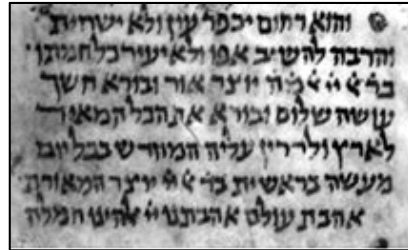 והוא רחום יכפר עון ולא ישחית
והרבה להשיב אפו ולא יעיר כל חמתו
בר׳ א׳ יי א׳ מ׳ ה׳ יוצר אור ובורא חשך
עושה שלום ובורא את הכל המאיר
לארץ ולדרין עליה המחדש בכל יום
מעשה בראשית בר׳ א׳ יי יוצר המאורת
אהבת עולם אהבתנו יי אלהינו חמלה